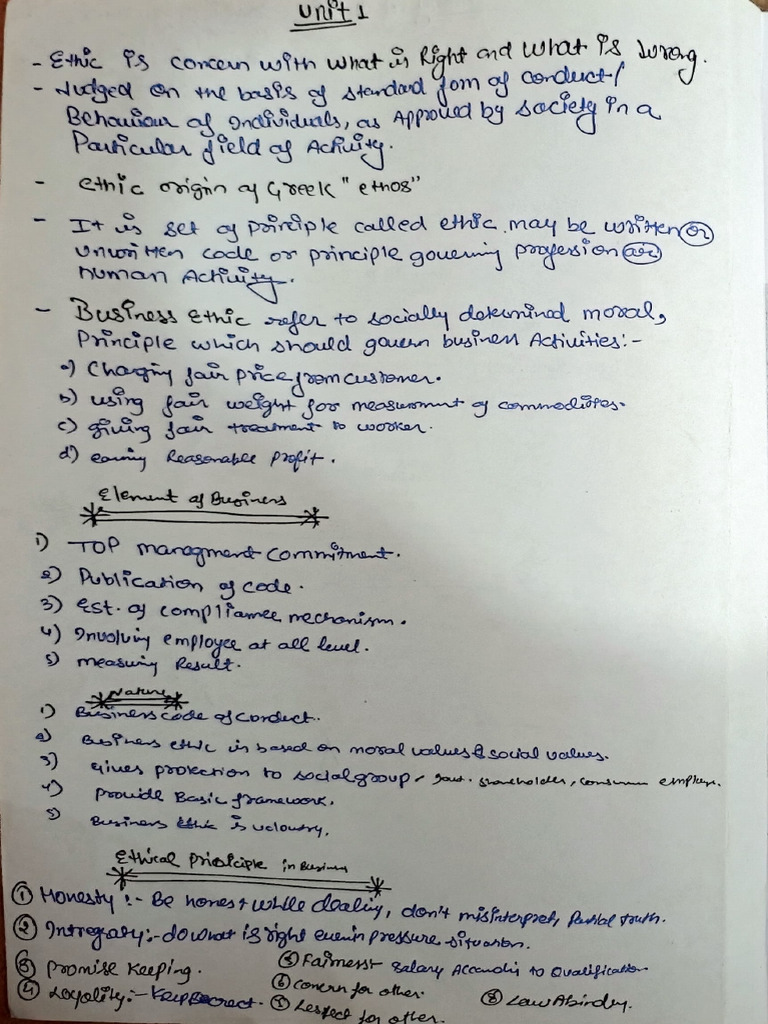 Unit 1
- Ethic is concern with what is Right and what is wrong.
- Judged on the basis of standard fom of conduct/
Behaviour of Individuals, as Approved by society in a
Particular field of Activity.
- ethic origin of Greek "ethos"
- It is set of principle called ethic may be written or
unwritten code or principle governing profession
human Activity.
- Business ethic refer to socially determined moral,
Principle which should govern business Activities:-
a) Charging fair price from customer.
b) using fair weight for measurment of commodities.
c) giving fair treatment to worker.
d) earning Reasonable Profit.
Element of Business
1) TOP managment commitment.
2) Publication of code.
3) Est. of compliance mechanism.
4) Involving employee at all level.
5) measuring Result.
Nature
1) Business code of conduct.
2) Business ethic is based on moral values & social values.
3) Gives protection to social group - Gout. shareholder, consumer employee.
4) Provide Basic framework.
5) Business ethic is voluntry.
Ethical Principle in Business
① Honesty :- Be honest while dealing, don't misinterpret, Partial truth.
② Integraty:- do what is right even in pressure situation.
③ Promise Keeping. ⑤ Fairness Salary According to Qualification
④ Loyality:- Keep secret. ⑥ concern for other. ⑧ Law Abinding.
⑦ Respect for other.